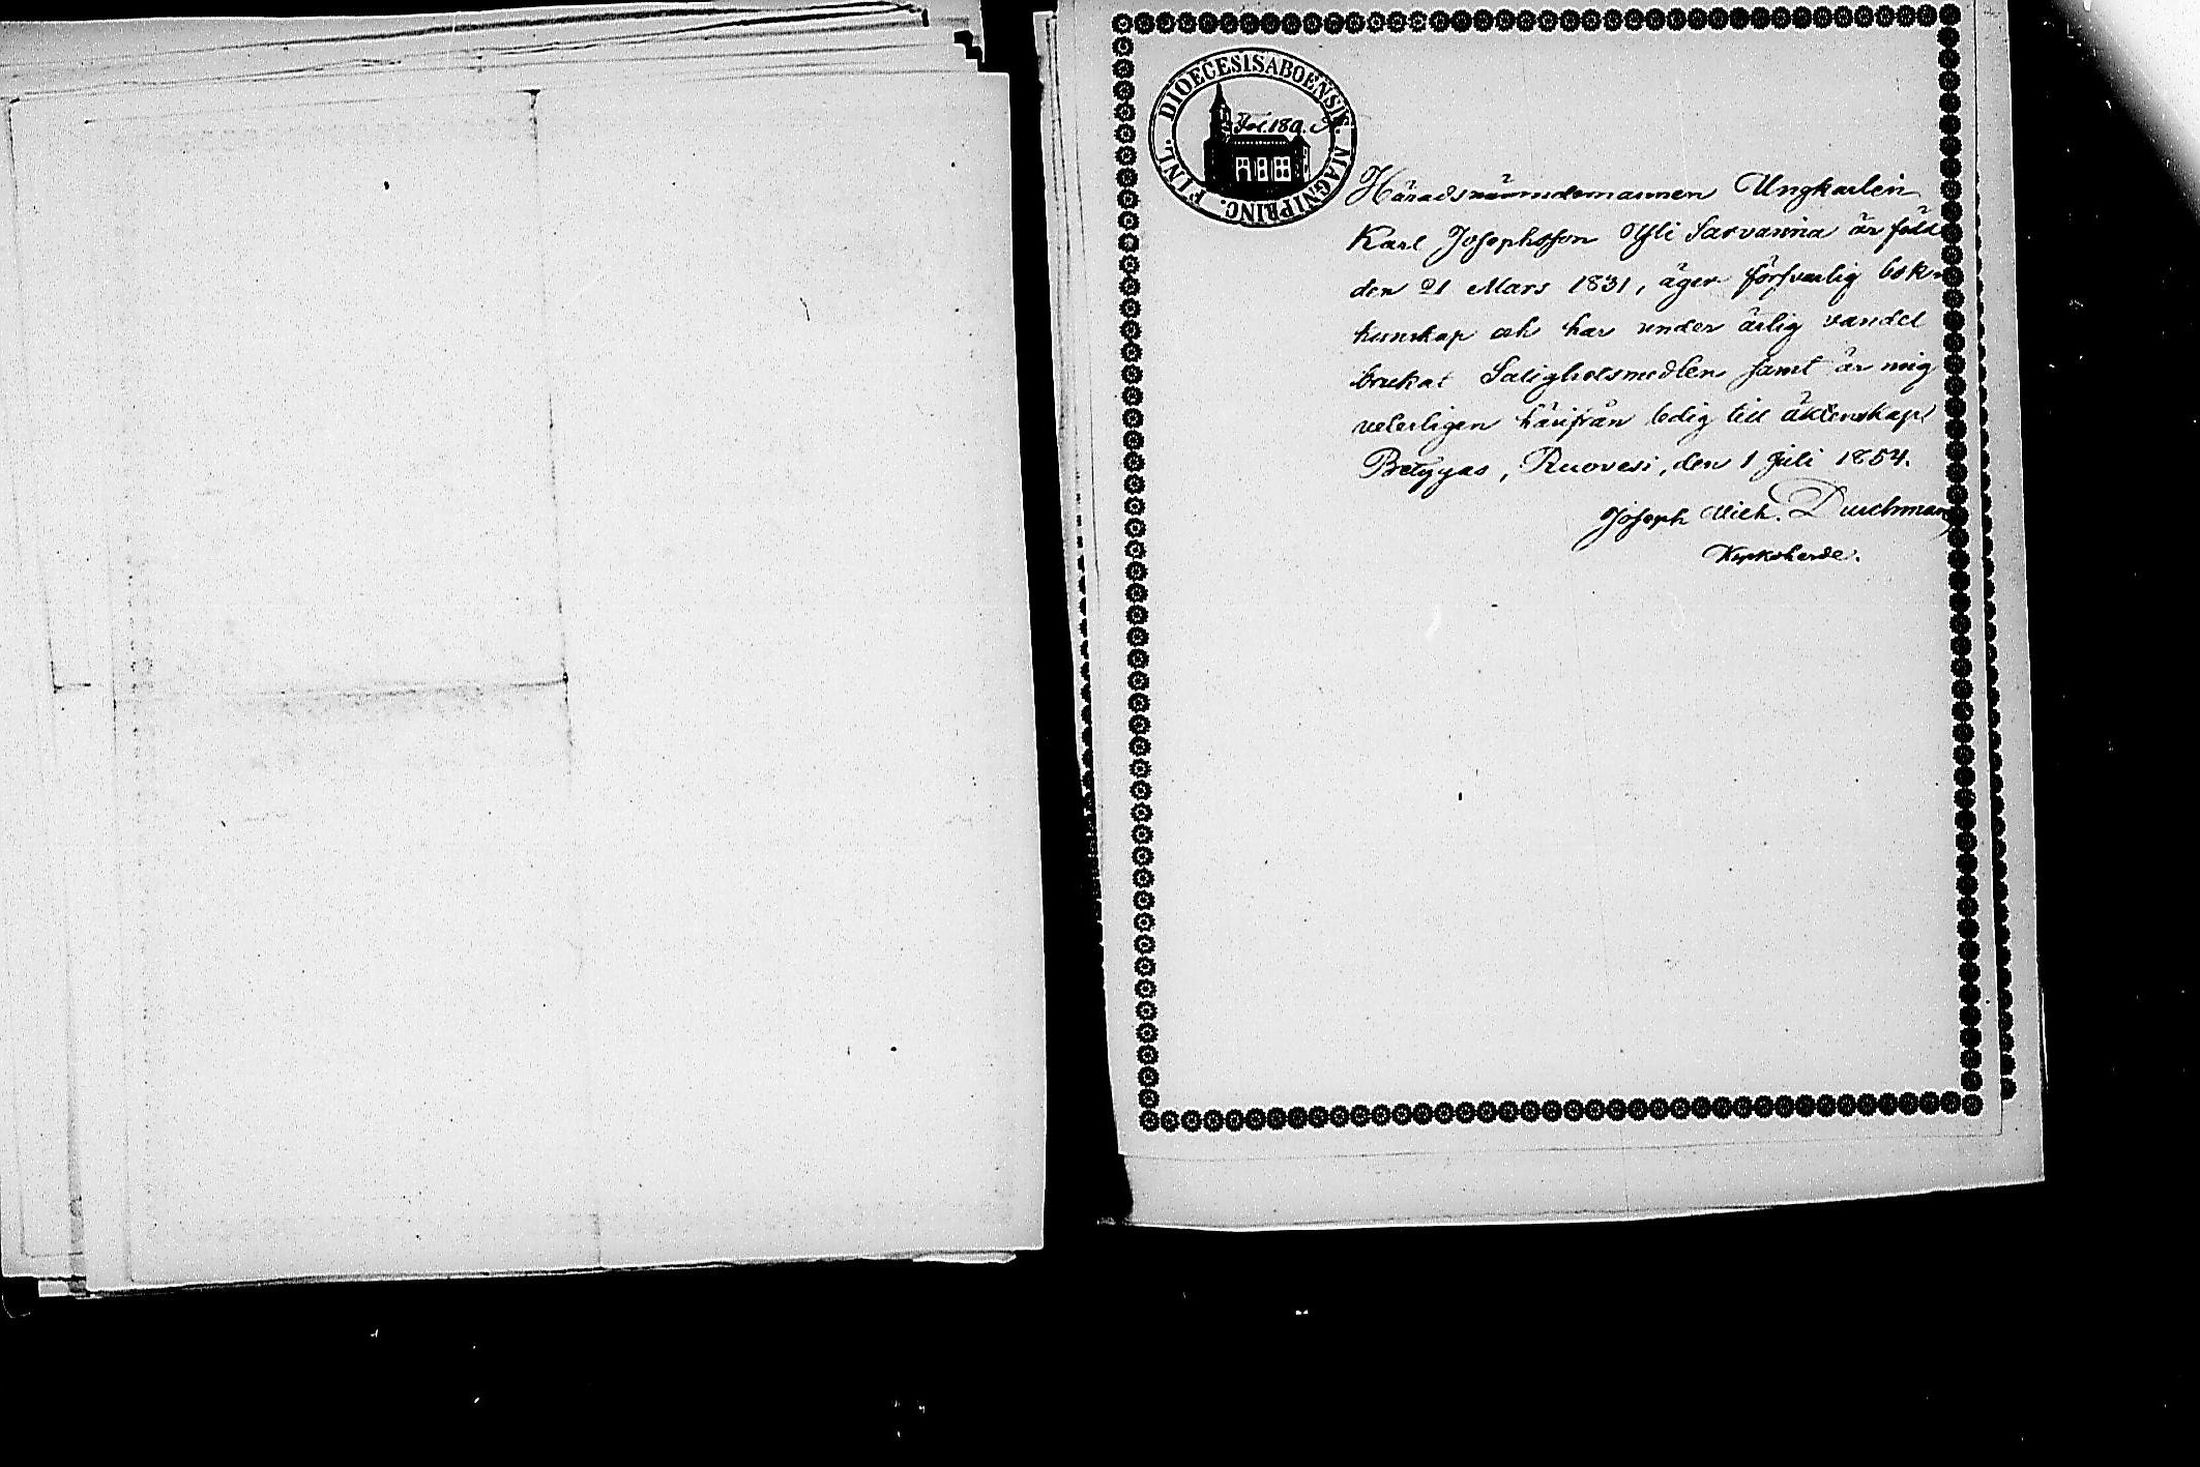 DIOECESIS ABOENSIS. MAGNI PRINC. FINL.
Fol. 180.
Häradsnämndemannen Ungkarlen
Karl Josephsson Yli Sarvanna är född
den 21 Mars 1831, äger försvarlig bok
kunskap och har under ärlig vandel
brukat Salighetsmedlen samt är mig
veterligen härifrån ledig till äktenskap
Betygas, Ruovesi, den 1 Juli 1854.
Joseph Mich. Durchman
Kyrkoherde.